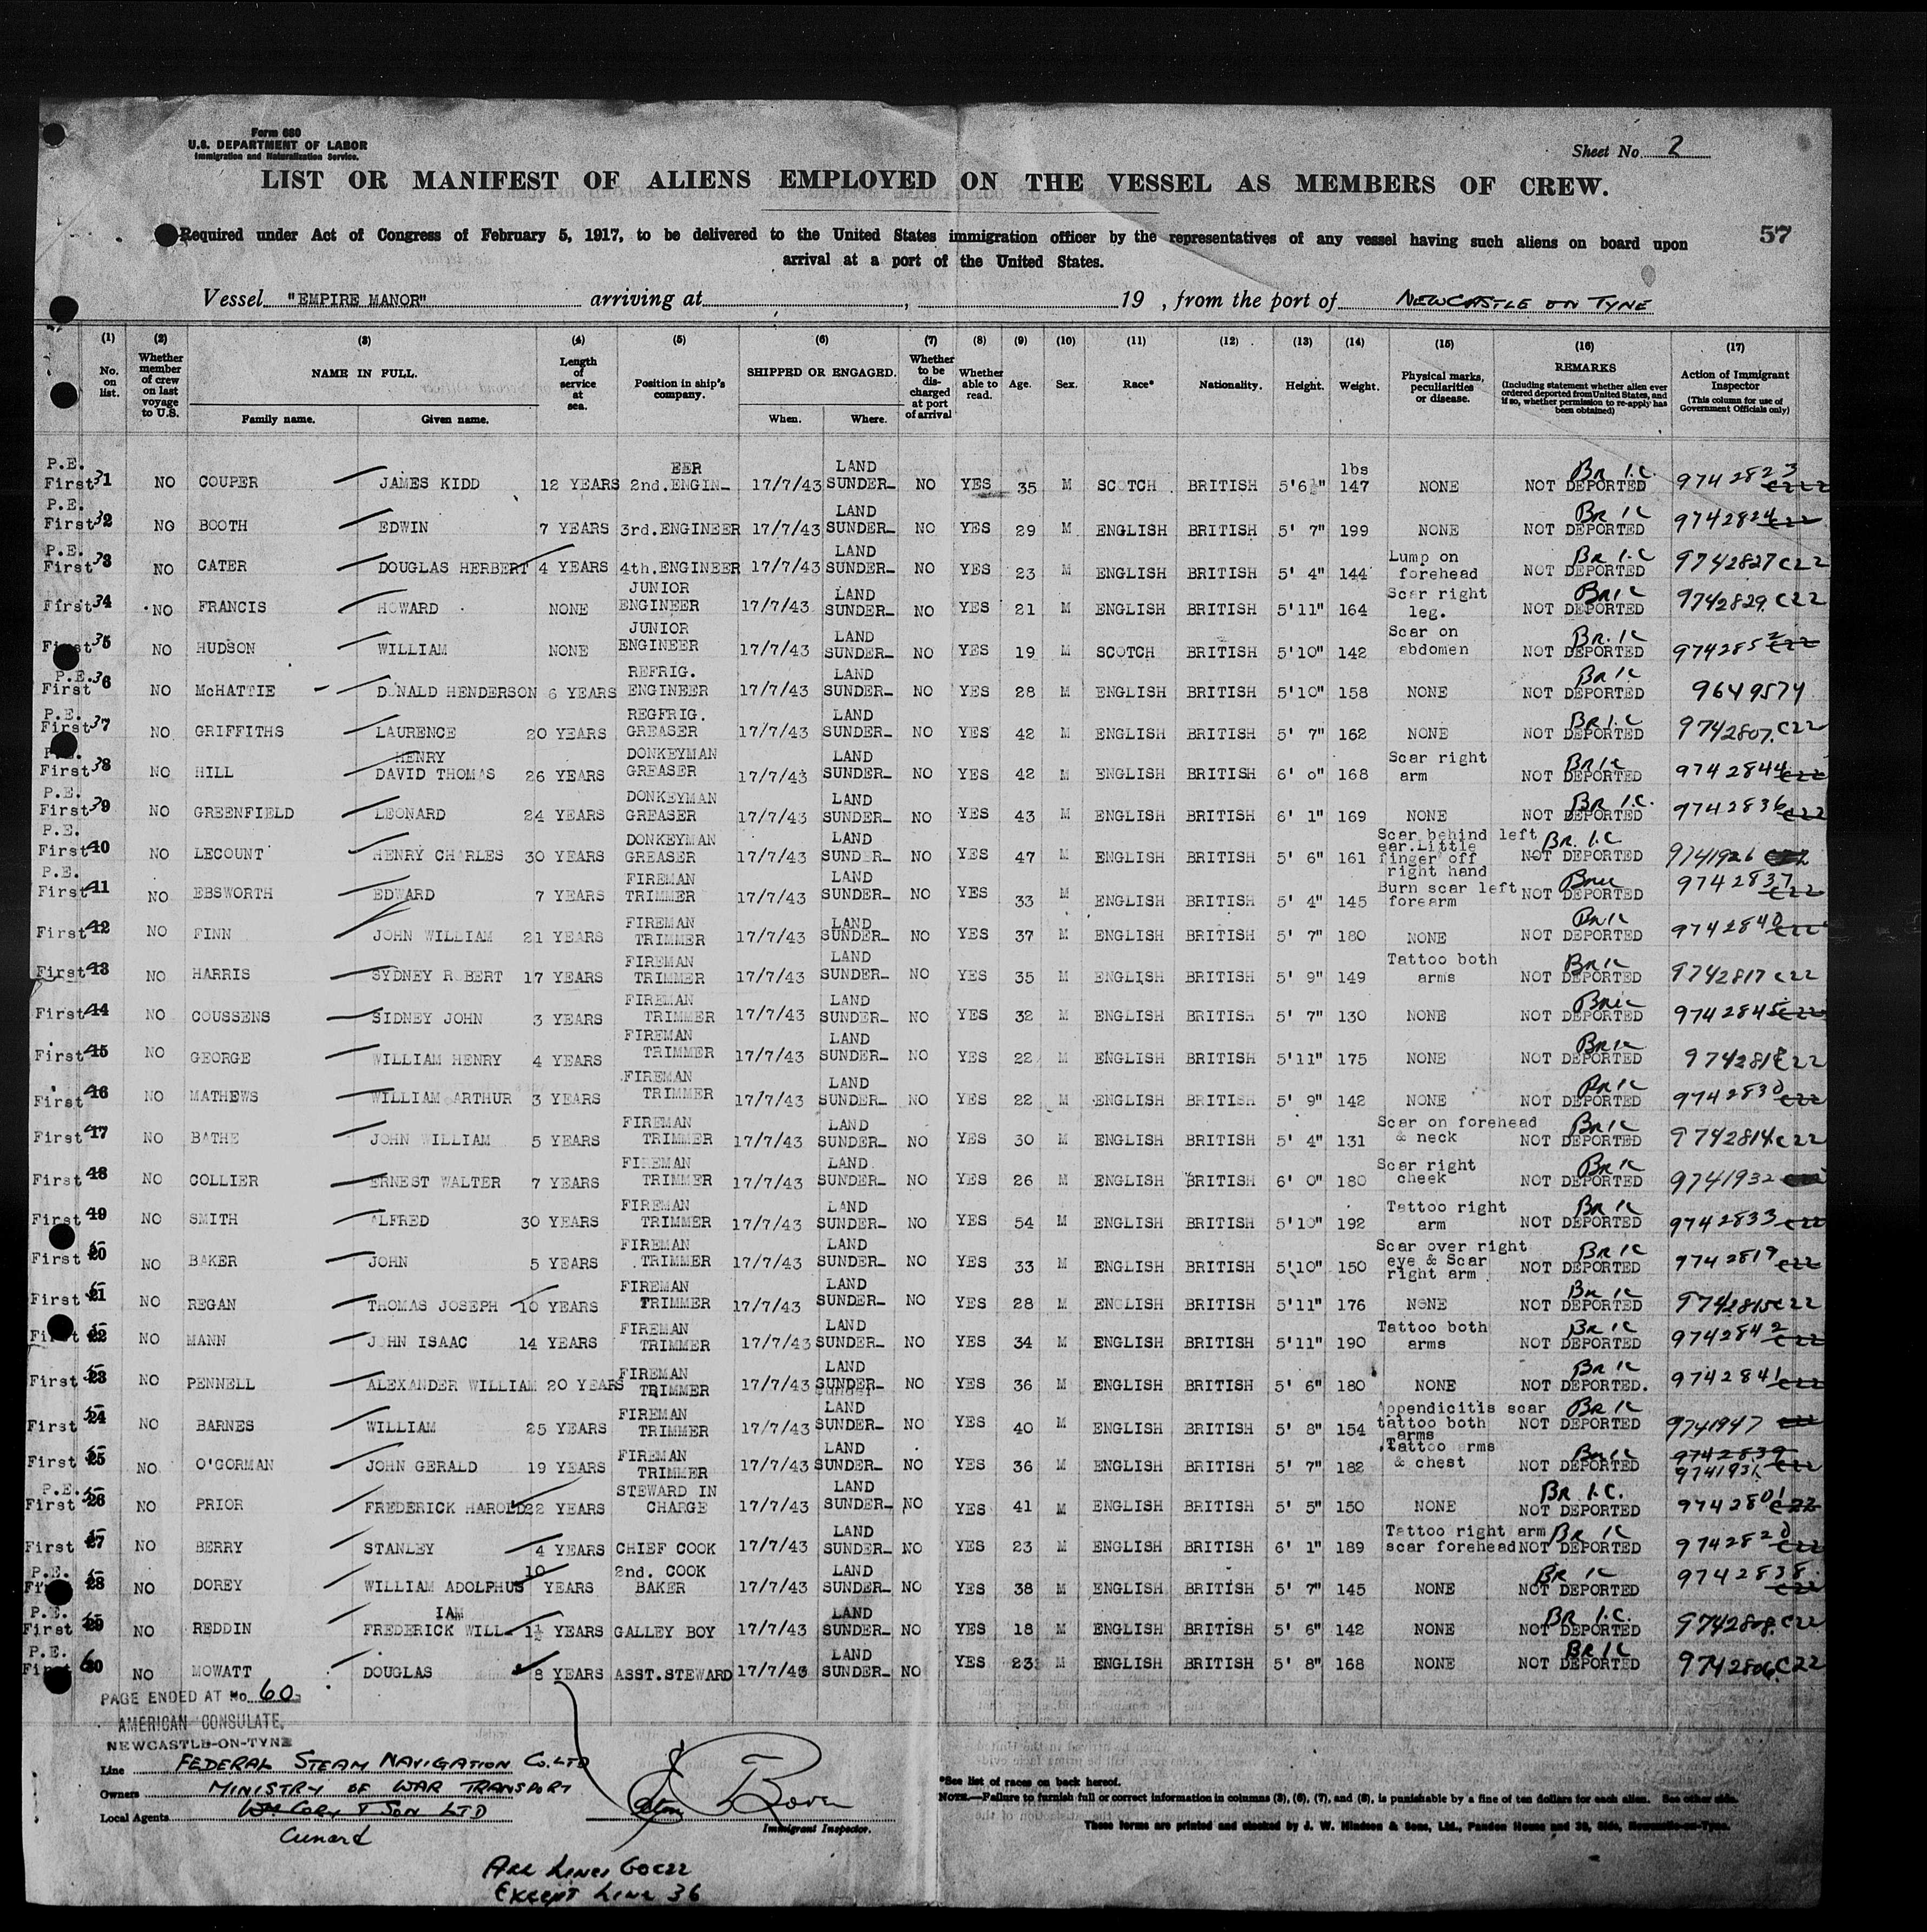 Form 680
U.S. DEPARTMENT OF LABOR
Immigration and Naturalization Service.
Sheet No. 2
LIST OR MANIFEST OF ALIENS EMPLOYED ON THE VESSEL AS MEMBERS OF CREW.
Required under Act of Congress of February 5, 1917, to be delivered to the United States immigration officer by the representatives of any vessel having such aliens on board upon
arrival at a port of the United States.
57
Vessel "EMPIRE MANOR" arriving at , 19 , from the port of NEWCASTLE ON TYNE
(1) (2) (3) (4) (5) (6) (7) (8) (9) (10) (11) (12) (13) (14) (15) (16) (17)
No. on list. Whether member of crew on last voyage to U.S. NAME IN FULL. Family name. Given name. Length of service at sea. Position in ship's company. SHIPPED OR ENGAGED. When. Where. Whether to be discharged at port of arrival Whether able to read. Age. Sex. Race* Nationality. Height. Weight. Physical marks, peculiarities or disease. REMARKS (Including statement whether alien ever ordered deported from United States, and if so, whether permission to re-apply has been obtained) Action of Immigrant Inspector (This column for use of Government Officials only)
P.E. First 31 NO COUPER JAMES KIDD 12 YEARS 2nd. ENGIN-EER 17/7/43 SUNDER-LAND NO YES 35 M SCOTCH BRITISH 5'6½" 147 lbs NONE NOT DEPORTED Br I.C. 9742823 C22
P.E. First 32 NO BOOTH EDWIN 7 YEARS 3rd. ENGINEER 17/7/43 SUNDER-LAND NO YES 29 M ENGLISH BRITISH 5' 7" 199 NONE NOT DEPORTED Br IC 9742824 C22
P.E. First 33 NO CATER DOUGLAS HERBERT 4 YEARS 4th. ENGINEER 17/7/43 SUNDER-LAND NO YES 23 M ENGLISH BRITISH 5' 4" 144 Lump on forehead NOT DEPORTED Br I.C 9742827 C22
First 34 NO FRANCIS HOWARD NONE JUNIOR ENGINEER 17/7/43 SUNDER-LAND NO YES 21 M ENGLISH BRITISH 5'11" 164 Scar right leg. NOT DEPORTED Br IC 9742829 C22
First 35 NO HUDSON WILLIAM NONE JUNIOR ENGINEER 17/7/43 SUNDER-LAND NO YES 19 M SCOTCH BRITISH 5'10" 142 Scar on abdomen NOT DEPORTED Br. IC 9742852 C22
P.E. First 36 NO McHATTIE DONALD HENDERSON 6 YEARS REFRIG. ENGINEER 17/7/43 SUNDER-LAND NO YES 28 M ENGLISH BRITISH 5'10" 158 NONE NOT DEPORTED Br IC 9649574
P.E. First 37 NO GRIFFITHS LAURENCE 20 YEARS REGFRIG. GREASER 17/7/43 SUNDER-LAND NO YES 42 M ENGLISH BRITISH 5' 7" 162 NONE NOT DEPORTED Br I.C 9742807 C22
P.E. First 38 NO HILL HENRY DAVID THOMAS 26 YEARS DONKEYMAN GREASER 17/7/43 SUNDER-LAND NO YES 42 M ENGLISH BRITISH 6' 0" 168 Scar right arm NOT DEPORTED Br IC 9742844 C22
P.E. First 39 NO GREENFIELD LEONARD 24 YEARS DONKEYMAN GREASER 17/7/43 SUNDER-LAND NO YES 43 M ENGLISH BRITISH 6' 1" 169 NONE NOT DEPORTED Br I.C. 9742836 C22
P.E. First 40 NO LECOUNT HENRY CHARLES 30 YEARS DONKEYMAN GREASER 17/7/43 SUNDER-LAND NO YES 47 M ENGLISH BRITISH 5' 6" 161 Scar behind left ear. Little finger off right hand NOT DEPORTED Br. I.C 9741926
P.E. First 41 NO EBSWORTH EDWARD 7 YEARS FIREMAN TRIMMER 17/7/43 SUNDER-LAND NO YES 33 M ENGLISH BRITISH 5' 4" 145 Burn scar left forearm NOT DEPORTED Br IC 9742837 C22
First 42 NO FINN JOHN WILLIAM 21 YEARS FIREMAN TRIMMER 17/7/43 SUNDER-LAND NO YES 37 M ENGLISH BRITISH 5' 7" 180 NONE NOT DEPORTED Br IC 9742840 C22
First 43 NO HARRIS SYDNEY ROBERT 17 YEARS FIREMAN TRIMMER 17/7/43 SUNDER-LAND NO YES 35 M ENGLISH BRITISH 5' 9" 149 Tattoo both arms NOT DEPORTED Br IC 9742817 C22
First 44 NO COUSSENS SIDNEY JOHN 3 YEARS FIREMAN TRIMMER 17/7/43 SUNDER-LAND NO YES 32 M ENGLISH BRITISH 5' 7" 130 NONE NOT DEPORTED Br IC 9742845 C22
First 45 NO GEORGE WILLIAM HENRY 4 YEARS FIREMAN TRIMMER 17/7/43 SUNDER-LAND NO YES 22 M ENGLISH BRITISH 5'11" 175 NONE NOT DEPORTED Br IC C22
First 46 NO MATHEWS WILLIAM ARTHUR 3 YEARS FIREMAN TRIMMER 17/7/43 SUNDER-LAND NO YES 22 M ENGLISH BRITISH 5' 9" 142 NONE NOT DEPORTED Br IC 9742830 C22
First 47 NO BATHE JOHN WILLIAM 5 YEARS FIREMAN TRIMMER 17/7/43 SUNDER-LAND NO YES 30 M ENGLISH BRITISH 5' 4" 131 Scar on forehead & neck NOT DEPORTED Br IC 9742814 C22
First 48 NO COLLIER ERNEST WALTER 7 YEARS FIREMAN TRIMMER 17/7/43 SUNDER-LAND NO YES 26 M ENGLISH BRITISH 6' 0" 180 Scar right cheek NOT DEPORTED Br IC 9741932
First 49 NO SMITH ALFRED 30 YEARS FIREMAN TRIMMER 17/7/43 SUNDER-LAND NO YES 54 M ENGLISH BRITISH 5'10" 192 Tattoo right arm NOT DEPORTED Br IC 9742833 C22
First 50 NO BAKER JOHN 5 YEARS FIREMAN TRIMMER 17/7/43 SUNDER-LAND NO YES 33 M ENGLISH BRITISH 5'10" 150 Scar over right eye & Scar right arm NOT DEPORTED Br IC 9742819 C22
First 51 NO REGAN THOMAS JOSEPH 10 YEARS FIREMAN TRIMMER 17/7/43 SUNDER-LAND NO YES 28 M ENGLISH BRITISH 5'11" 176 NONE NOT DEPORTED Br IC 9742815 C22
First 52 NO MANN JOHN ISAAC 14 YEARS FIREMAN TRIMMER 17/7/43 SUNDER-LAND NO YES 34 M ENGLISH BRITISH 5'11" 190 Tattoo both arms NOT DEPORTED Br IC 9742842 C22
First 53 NO PENNELL ALEXANDER WILLIAM 20 YEARS FIREMAN TRIMMER 17/7/43 SUNDER-LAND NO YES 36 M ENGLISH BRITISH 5' 6" 180 NONE NOT DEPORTED. Br IC 9742841 C22
First 54 NO BARNES WILLIAM 25 YEARS FIREMAN TRIMMER 17/7/43 SUNDER-LAND NO YES 40 M ENGLISH BRITISH 5' 8" 154 Appendicitis scar tattoo both arms NOT DEPORTED Br IC 9741947 C22
First 55 NO O'GORMAN JOHN GERALD 19 YEARS FIREMAN TRIMMER 17/7/43 SUNDER-LAND NO YES 36 M ENGLISH BRITISH 5' 7" 182 Tattoo arms & chest NOT DEPORTED Br IC 9742839 9741931 C22
P.E. First 56 NO PRIOR FREDERICK HAROLD 22 YEARS STEWARD IN CHARGE 17/7/43 SUNDER-LAND NO YES 41 M ENGLISH BRITISH 5' 5" 150 NONE NOT DEPORTED Br I.C. 9742801 C22
First 57 NO BERRY STANLEY 4 YEARS CHIEF COOK 17/7/43 SUNDER-LAND NO YES 23 M ENGLISH BRITISH 6' 1" 189 Tattoo right arm scar forehead NOT DEPORTED Br IC 9742820 C22
P.E. First 58 NO DOREY WILLIAM ADOLPHUS 10 YEARS 2nd. COOK BAKER 17/7/43 SUNDER-LAND NO YES 38 M ENGLISH BRITISH 5' 7" 145 NONE NOT DEPORTED Br IC 9742838 C22
P.E. First 59 NO REDDIN FREDERICK WILL-IAM 1½ YEARS GALLEY BOY 17/7/43 SUNDER-LAND NO YES 18 M ENGLISH BRITISH 5' 6" 142 NONE NOT DEPORTED Br I.C. 9742808 C22
P.E. First 60 NO MOWATT DOUGLAS 8 YEARS ASST. STEWARD 17/7/43 SUNDER-LAND NO YES 23 M ENGLISH BRITISH 5' 8" 168 NONE NOT DEPORTED Br IC 9742806 C22
PAGE ENDED AT No 60
AMERICAN CONSULATE,
NEWCASTLE-ON-TYNE
Line FEDERAL STEAM NAVIGATION CO. LTD
Owners MINISTRY OF WAR TRANSPORT
Local Agents Wm Cory & Son LTD
Cunard
Immigrant Inspector.
*See list of races on back hereof.
NOTE.—Failure to furnish full or correct information in columns (3), (6), (7), and (8), is punishable by a fine of ten dollars for each alien. See other side.
These forms are printed and stocked by J. W. Hindson & Sons, Ltd., Pandon House and 30, Side, Newcastle-on-Tyne.
ALL LINES 60C22
EXCEPT LINE 36